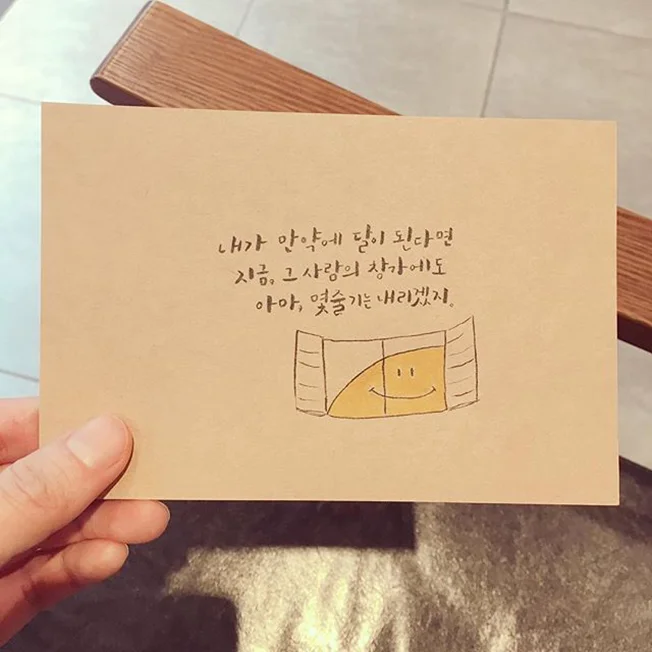 내가 만약에 달이 된다면
지금, 그 사랑의 창가에도
아마, 몇줄기는 내리겠지.